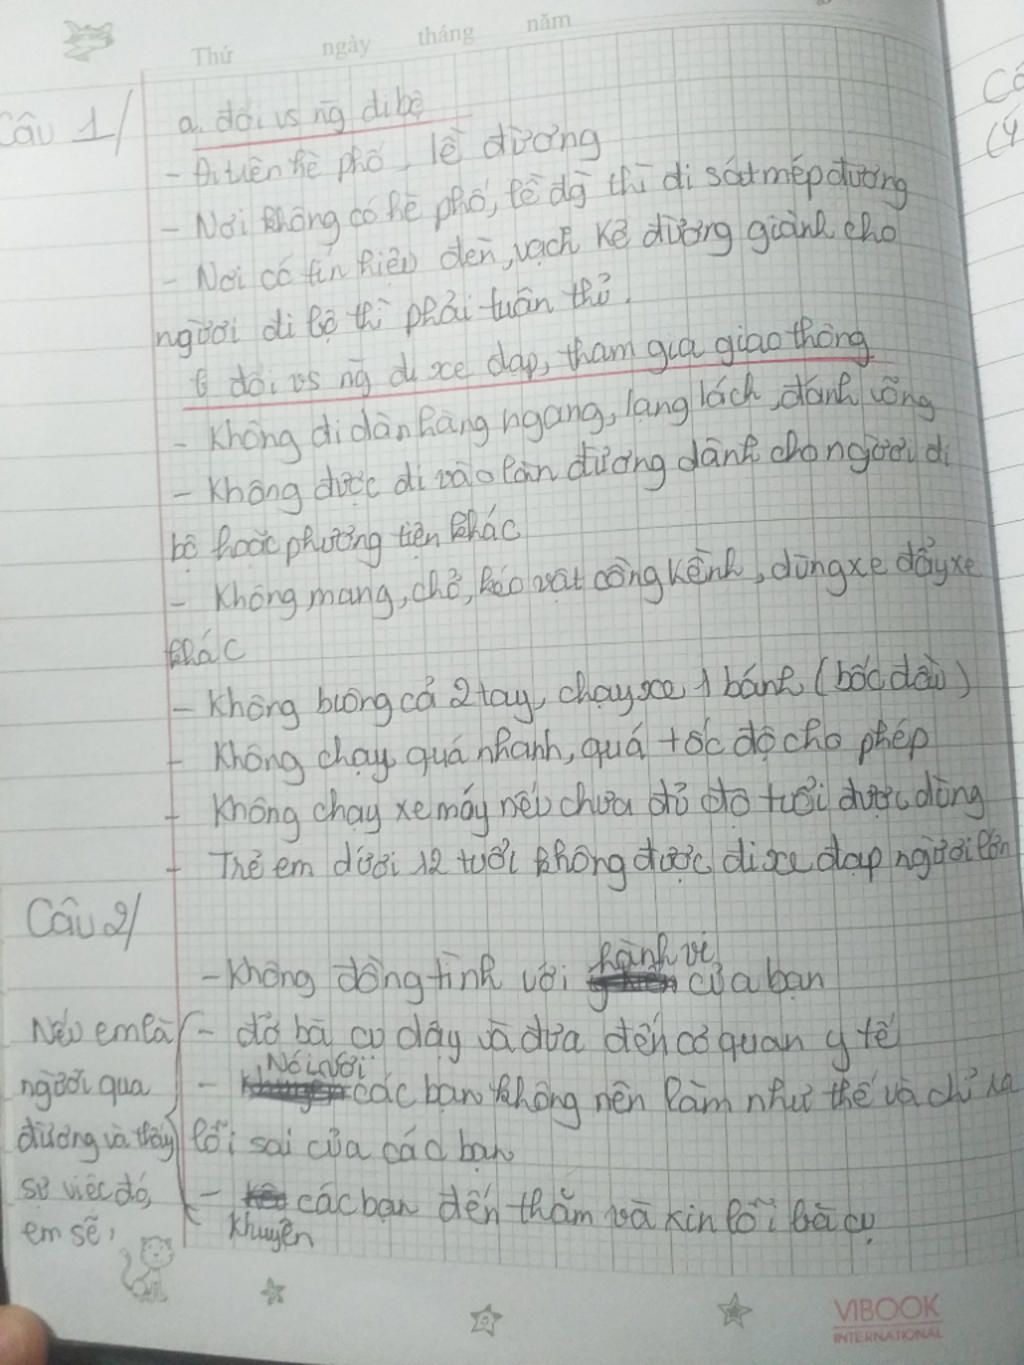 Thứ ngày tháng năm
Câu 1/
a. đối vs ng̃ đi bộ
- Đi trên hè phố, lề đường
- Nơi không có hè phố, lề đg̀ thì đi sát mép đường
- Nơi có tín hiệu đèn, vạch kẻ đường giành cho
người đi bộ thì phải tuân thủ.
b đối vs ng̃ đi xe đạp, tham gia giao thông
- Không đi dàn hàng ngang, lạng lách, đánh võng
- Không được đi vào làn đường dành cho người đi
bộ hoặc phương tiện khác
- Không mang, chở, kéo vật cồng kềnh, dùng xe đẩy xe
khác
- Không buông cả 2 tay, chạy xe 1 bánh (bốc đầu)
- Không chạy quá nhanh, quá tốc độ cho phép
- Không chạy xe máy nếu chưa đủ độ tuổi được dùng
- Trẻ em dưới 12 tuổi không được đi xe đạp người lớn
Câu 2/
- Không đồng tình với hành vi của bạn
Nếu em là
người qua
đường và thấy
sự việc đó,
em sẽ:
- đỡ bà cụ dậy và đưa đến cơ quan y tế
- Nói với các bạn không nên làm như thế và chỉ ra
lỗi sai của các bạn
- Khuyên các bạn đến thăm và xin lỗi bà cụ
VIBOOK
INTERNATIONAL